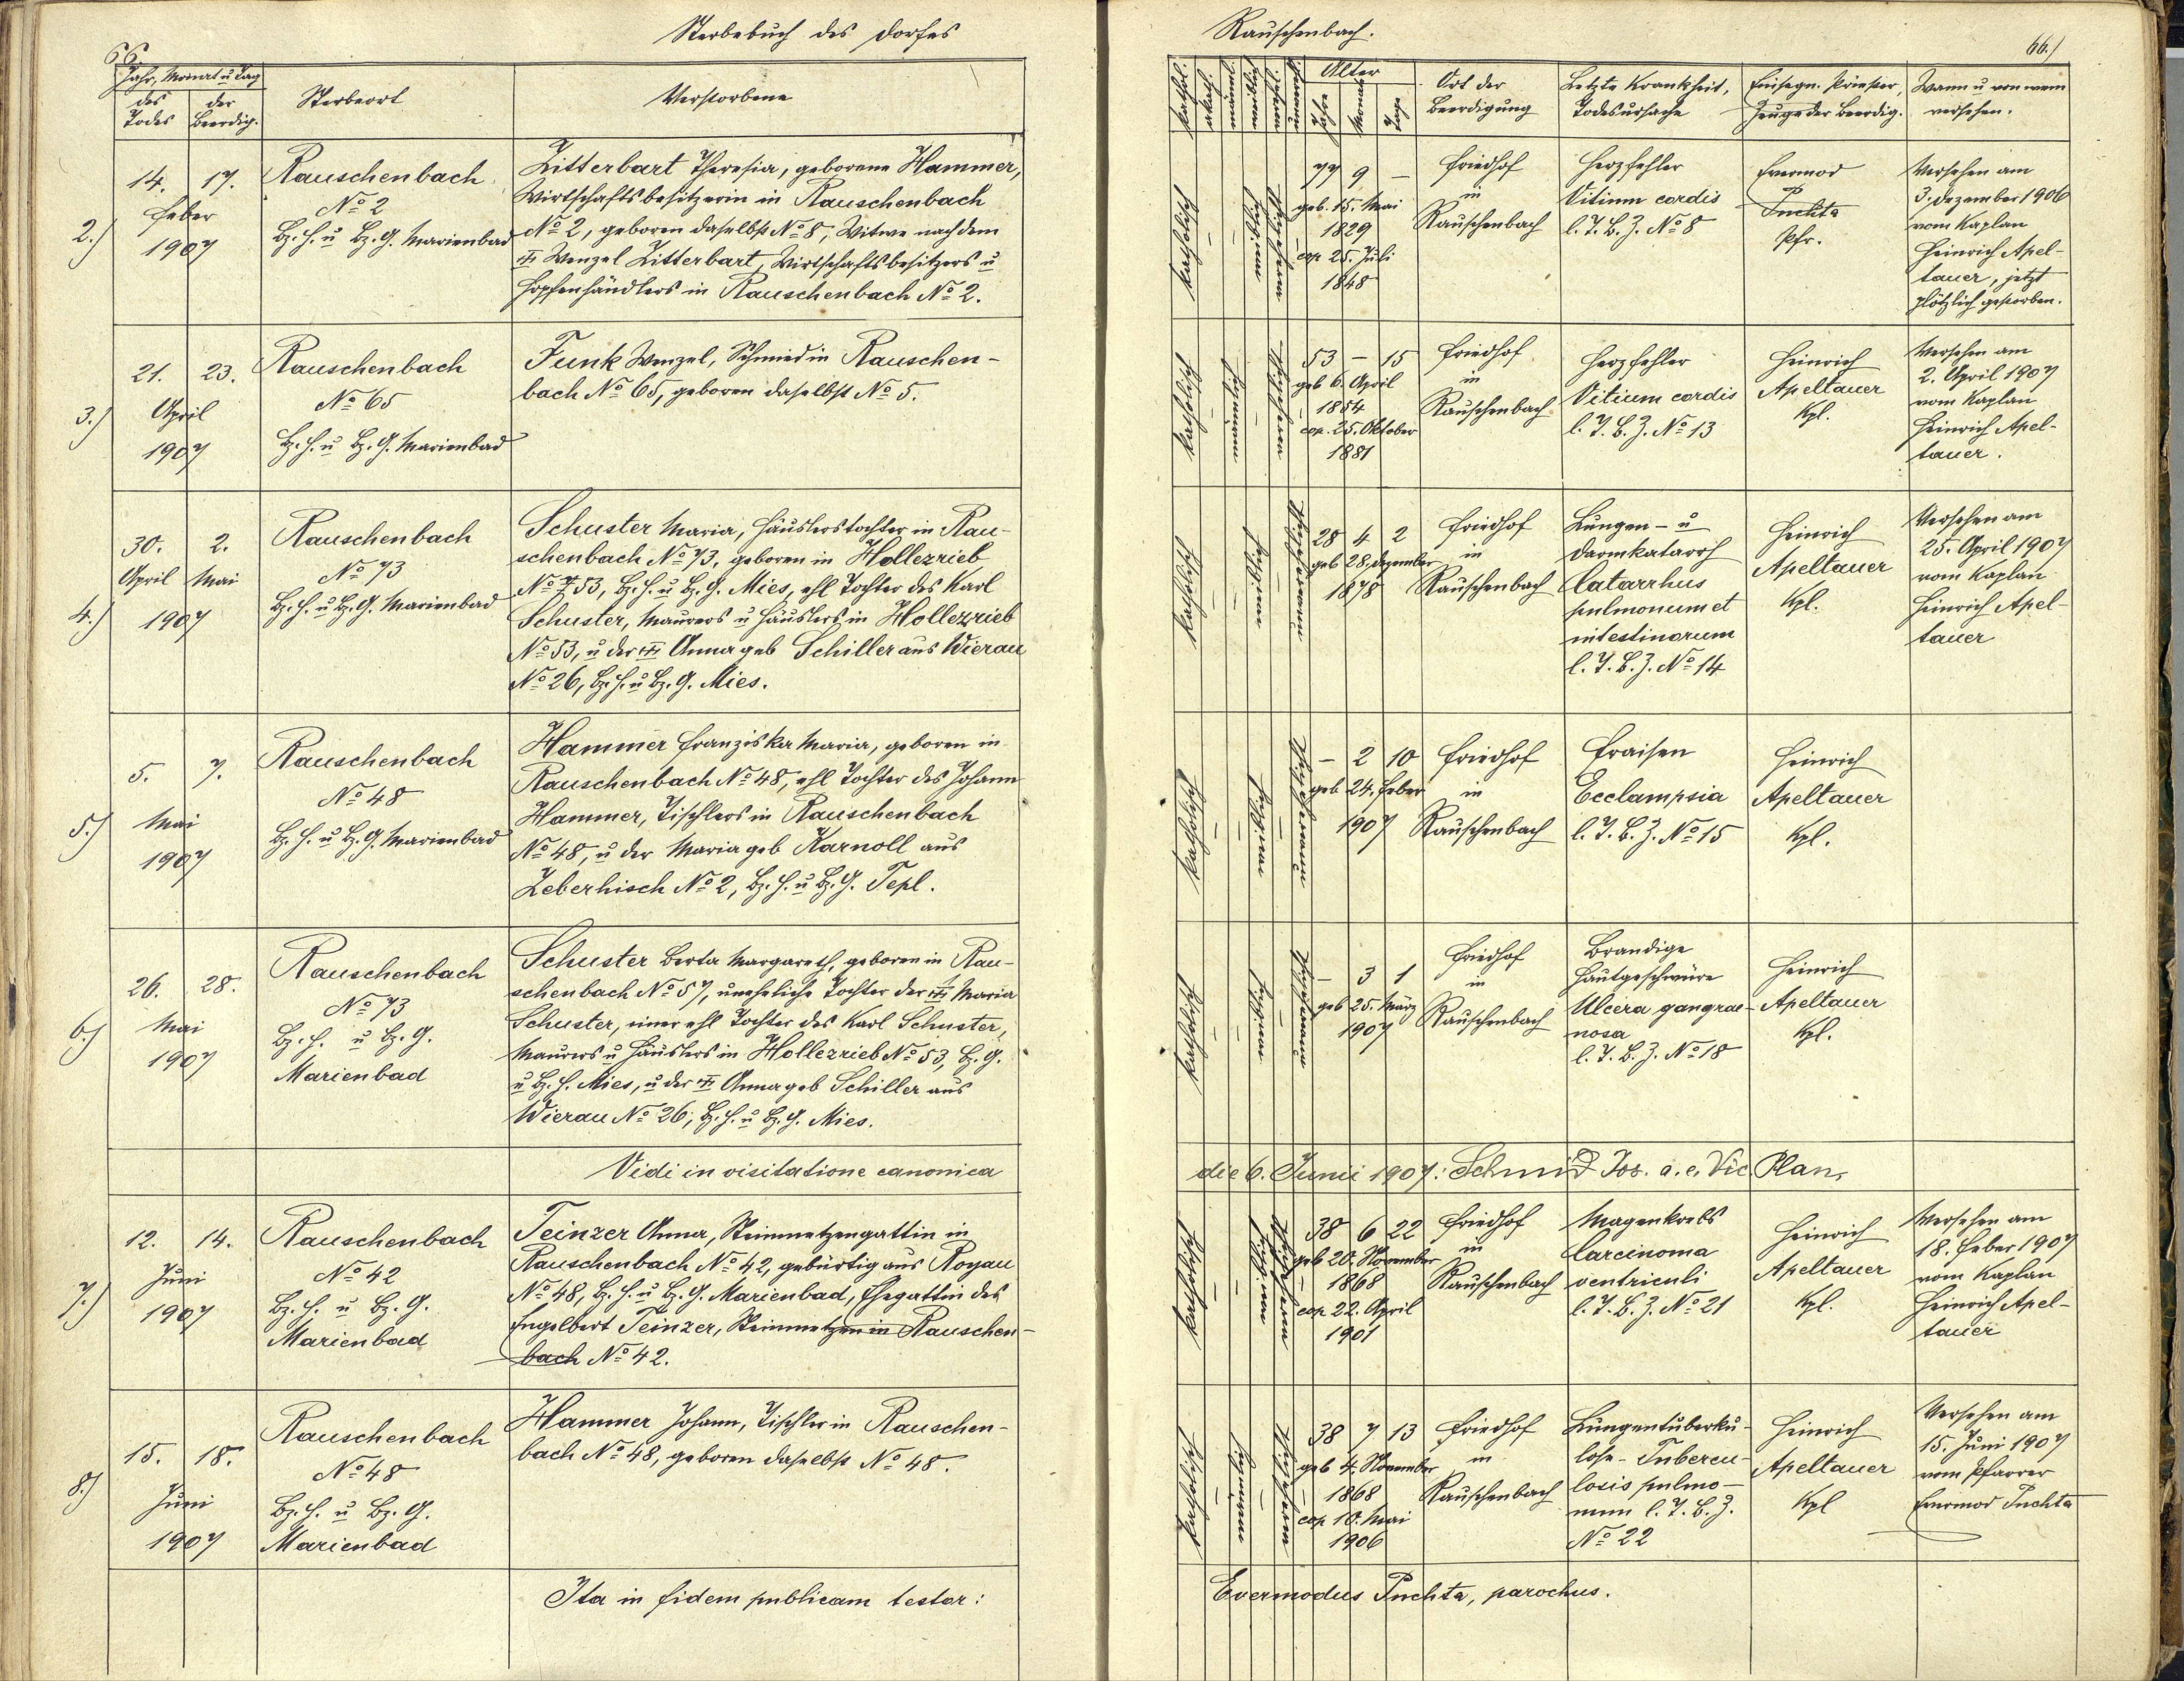 Sterbebuch des Dorfes
66.
Jahr, Monat u Tag
des Todes
der Beerdig.
Sterbeort
Verstorbene
2.)
14. 17.
Feber
1907
Rauschenbach
No 2
Bz. H. u Bz. G. Marienbad
Zitterbart Theresia, geborene Hammer,
Wirtschaftsbesitzerin in Rauschenbach
No 2, geboren daselbst No 8, Witwe nach dem
Wenzel Zitterbart, Wirtschaftsbesitzers u
Hopfenhändlers in Rauschenbach No 2.
3.)
21. 23.
April
1907
Rauschenbach
No 65
Bz. H. u Bz. G. Marienbad
Funk Wenzel, Schmied in Rauschen-
bach No 65, geboren daselbst No 5.
4.)
30. 2.
April Mai
1907
Rauschenbach
No 73
Bz. H. u Bz. G. Marienbad
Schuster Maria, Häuslerstochter in Rau-
schenbach No 73, geboren in Hollezrieb
No 53, Bz. H. u Bz. G. Mies, ehl Tochter des Karl
Schuster, Maurers u Häuslers in Hollezrieb
No 53, u der Anna geb Schiller aus Wierau
No 26, Bz. H. u Bz. G. Mies.
5.)
5. 7.
Mai
1907
Rauschenbach
No 48
Bz. H. u Bz. G. Marienbad
Hammer Franziska Maria, geboren in
Rauschenbach No 48, ehl Tochter des Johann
Hammer, Tischlers in Rauschenbach
No 48, u der Maria geb Karnoll aus
Zeberhisch No 2, Bz. H. u Bz. G. Tepl.
6.)
26. 28.
Mai
1907
Rauschenbach
No 73
Bz. H. u Bz. G.
Marienbad
Schuster Berta Margareth, geboren in Rau-
schenbach No 57, uneheliche Tochter der Maria
Schuster, einer ehl Tochter des Karl Schuster,
Maurers u Häuslers in Hollezrieb No 53, Bz. G.
u Bz. H. Mies, u der Anna geb Schiller aus
Wierau No 26, Bz. H. u Bz. G. Mies.
Vidi in visitatione canonica
7.)
12. 14.
Juni
1907
Rauschenbach
No 42
Bz. H. u Bz. G.
Marienbad
Teinzer Anna, Steinmetzengattin in
Rauschenbach No 42, gebürtig aus Royau
No 48, Bz. H. u Bz. G. Marienbad, Ehegattin des
Engelbert Teinzer, Steinmetzen in Rauschen-
bach No 42.
8.)
15. 18.
Juni
1907
Rauschenbach
No 48
Bz. H. u Bz. G.
Marienbad
Hammer Johann, Tischler in Rauschen-
bach No 48, geboren daselbst No 48.
Ita in fidem publicam testor:
Rauschenbach.
66.)
Alter
Jahr
Monat
Tag
Ort der
Beerdigung
Letzte Krankheit,
Todesursache
Einsegn. Priester,
Zeuge der Beerdig.
Wann u von wem
versehen.
katholisch
77 9 –
geb. 15. Mai
1829
cop 25. Juli
1848
Friedhof
in
Rauschenbach
Herzfehler
Vitium cordis
l. T. B. Z. No 8
Evermod
Puchta
Pfr.
Versehen am
3. Dezember 1906
vom Kaplan
Heinrich Apel-
tauer, jetzt
plötzlich gestorben.
katholisch
53 – 15
geb 6. April
1854
cop. 25. Oktober
1881
Friedhof
in
Rauschenbach
Herzfehler
Vitium cordis
l. T. B. Z. No 13
Heinrich
Apeltauer
Kpl.
Versehen am
2. April 1907
vom Kaplan
Heinrich Apel-
tauer.
katholisch
28 4 2
geb 28. Dezember
1878
Friedhof
in
Rauschenbach
Lungen- u
Darmkatarrh
Catarrhus
pulmonum et
intestinorum
l. T. B. Z. No 14
Heinrich
Apeltauer
Kpl.
Versehen am
25. April 1907
vom Kaplan
Heinrich Apel-
tauer
katholisch
– 2 10
geb 24. Feber
1907
Friedhof
in
Rauschenbach
Fraisen
Ecclampsia
l. T. B. Z. No 15
Heinrich
Apeltauer
Kpl.
katholisch
– 3 1
geb 25. März
1907
Friedhof
in
Rauschenbach
Brandige
Hautgeschwüre
Ulcera gangrae-
nosa
l. T. B. Z. No 18
Heinrich
Apeltauer
Kpl.
die 6. Junii 1907: Schmid Jos. a. e. Vic. Plan,
katholisch
38 6 22
geb 20. November
1868
cop 22. April
1901
Friedhof
in
Rauschenbach
Magenkrebs
Carcinoma
ventriculi
l. T. B. Z. No 21
Heinrich
Apeltauer
Kpl.
Versehen am
18. Feber 1907
vom Kaplan
Heinrich Apel-
tauer
katholisch
38 7 13
geb 4. November
1868
cop 10. Mai
1906
Friedhof
in
Rauschenbach
Lungentuberku-
lose – Tubercu-
losis pulmo-
num l. T. B. Z.
No 22
Heinrich
Apeltauer
Kpl
Versehen am
15. Juni 1907
vom Pfarrer
Evermod Puchta
Evermodus Puchta, parochus.